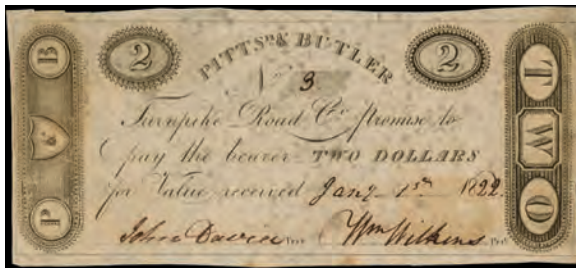 2 PITTSG. & BUTLER 2
No. 3
Turnpike Road Co. promise to
pay the bearer TWO DOLLARS
for Value received Jany. 1st 1822.
John Wm Wilkins
B
&
P
T
W
O